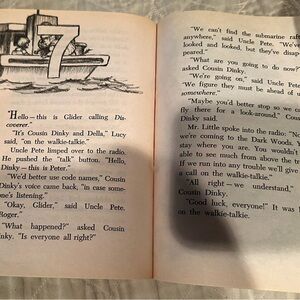 7
"Hello—this is Glider calling Dis-
coverer."
"It's Cousin Dinky and Della," Lucy
said, "on the walkie-talkie."
Uncle Pete limped over to the radio.
He pushed the "talk" button. "Hello,
Dinky—this is Peter."
"We'd better use code names," Cousin
Dinky's voice came back, "in case some-
one's listening."
"Okay, Glider," said Uncle Pete.
"Roger."
"What happened?" asked Cousin
Dinky. "Is everyone all right?"
"We can't find the submarine raft
anywhere," said Uncle Pete. "We've
looked and looked, but they've disap-
peared."
"What are you going to do now?"
asked Cousin Dinky.
"We're going on," said Uncle Pete.
"We figure they must be ahead of us
somewhere."
"Maybe you'd better stop so we can
fly there for a look-around," Cousin
Dinky said.
Mr. Little spoke into the radio: "No,
we're coming to the Dark Woods.
stay where you are. You wouldn't
able to see much from above the
If we run into any trouble we'll give
a call on the walkie-talkie."
"All right—we understand,"
Cousin Dinky.
"Good luck, everyone! It was
on the walkie-talkie.